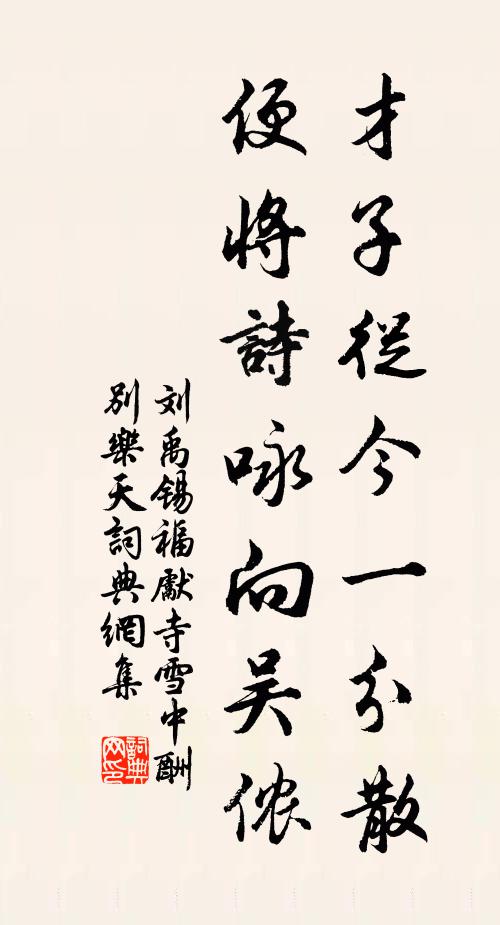 才子從今一分散
便將詩咏向吴侬
刘禹锡福獻寺雪中酬
别樂天詞典網集
詞典
网印